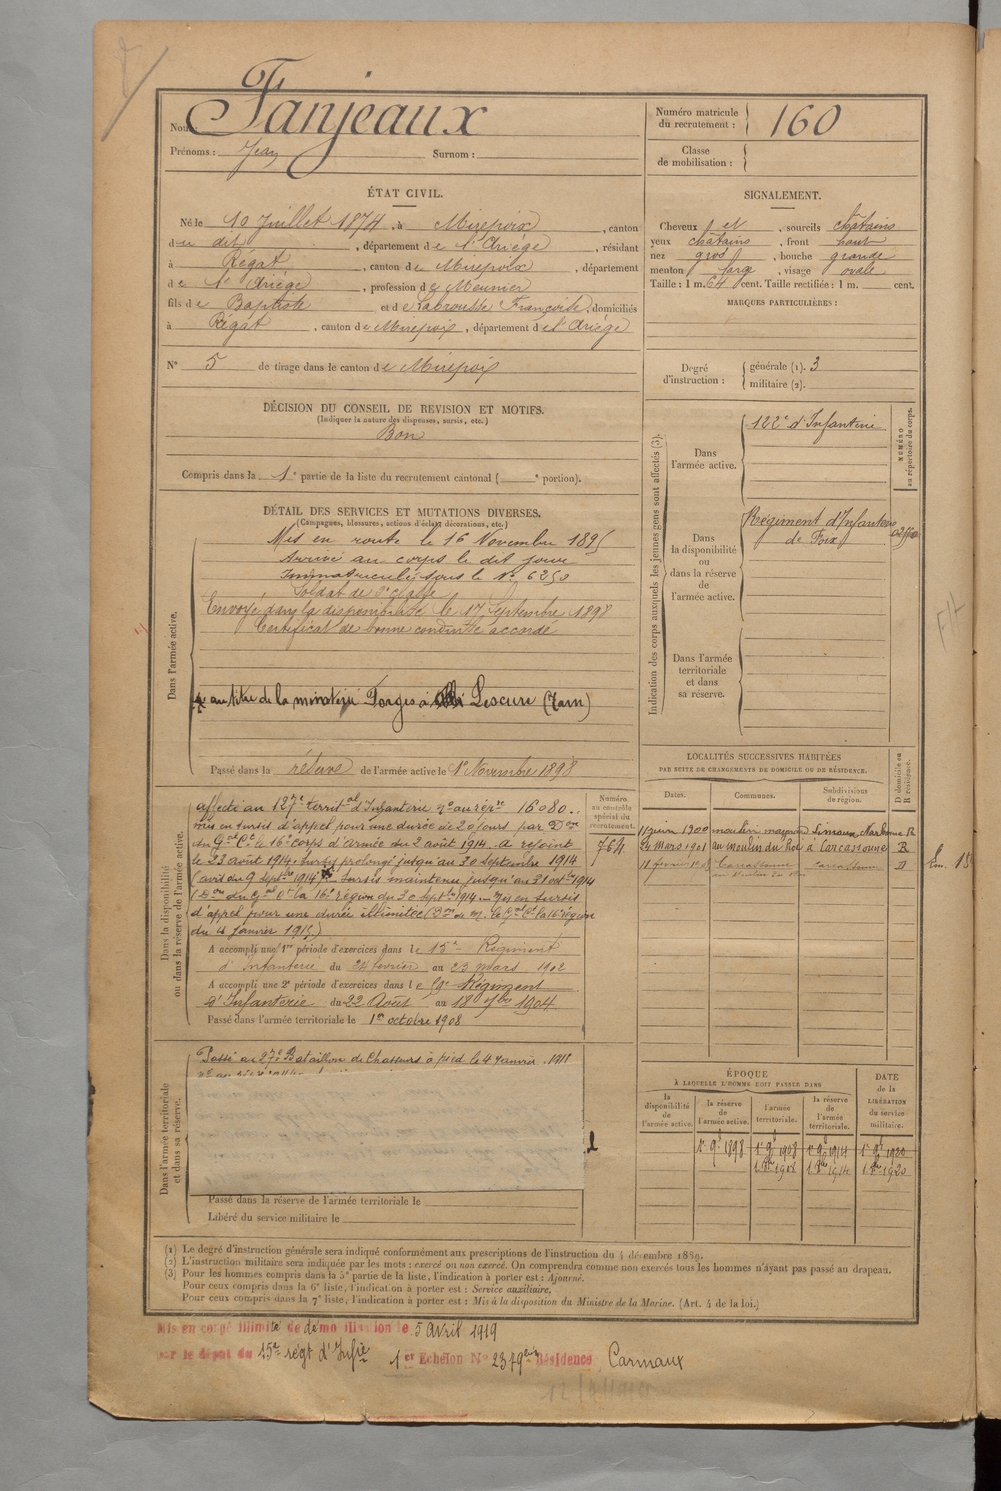 Nom : Fanjeaux
Prénoms : Jean Surnom :
Numéro matricule du recrutement : 160
Classe de mobilisation :
ÉTAT CIVIL.
Né le 10 Juillet 1874, à Mirepoix, canton
du dit, département de l'Ariège, résidant
à Régat, canton de Mirepoix, département
de l'Ariège, profession de Meunier
fils de Baptiste et de Labrousse Françoise, domiciliés
à Régat, canton de Mirepoix, département de l'Ariège
N° 5 de tirage dans le canton de Mirepoix
SIGNALEMENT.
Cheveux et, sourcils châtains
yeux châtains, front haut
nez gros, bouche grande
menton large, visage ovale
Taille : 1 m. 64 cent. Taille rectifiée : 1 m. cent.
MARQUES PARTICULIÈRES :
Degré d'instruction : générale (1). 3
militaire (2).
DÉCISION DU CONSEIL DE REVISION ET MOTIFS.
(Indiquer la nature des dispenses, sursis, etc.)
Bon
Compris dans la 1e partie de la liste du recrutement cantonal ( e portion).
DÉTAIL DES SERVICES ET MUTATIONS DIVERSES.
(Campagnes, blessures, actions d'éclat, décorations, etc.)
Dans l'armée active.
Mis en route le 16 Novembre 1895
Arrivé au corps le dit jour
Immatriculé sous le N° 6250
Soldat de 2e classe
Envoyé dans la disponibilité le 17 Septembre 1898
Certificat de bonne conduite accordé
au titre de la minoterie Forges à Lescure (Tarn)
Passé dans la réserve de l'armée active le 1er Novembre 1898
Indication des corps auxquels les jeunes gens sont affectés (3).
NUMÉRO au répertoire du corps.
Dans l'armée active.
122e d'Infanterie
Dans la disponibilité ou dans la réserve de l'armée active.
Régiment d'Infanterie
de Foix
Dans l'armée territoriale et dans sa réserve.
LOCALITÉS SUCCESSIVES HABITÉES
PAR SUITE DE CHANGEMENTS DE DOMICILE OU DE RÉSIDENCE.
Dates. Communes. Subdivisions de région. D domicile ou R résidence.
11 juin 1900 moulin maynard Limoux Narbonne R
24 Mars 1901 au moulin du Roi à Carcassonne R
11 février 1908 Carcassonne Carcassonne D
au Moulin du Roi
Dans la disponibilité ou dans la réserve de l'armée active.
Numéro au contrôle spécial du recrutement.
764
affecté au 127e territal d'Infanterie no au répre 16080
mis en sursis d'appel pour une durée de 20 jours par Don
du Gal Ct le 16e corps d'armée du 2 août 1914. a rejoint
le 23 août 1914. Sursis prolongé jusqu'au 30 septembre 1914
(avis du 9 septbre 1914) sursis maintenu jusqu'au 31 octbre 1914
(Don du Gal Ct la 16e région du 30 septbre 1914. Mis en sursis
d'appel pour une durée illimitée (Don de M. le Gal Ct la 16e région
du 4 Janvier 1915)
A accompli une 1re période d'exercices dans le 15e Régiment
d'Infanterie du 24 février au 23 mars 1902
A accompli une 2e période d'exercices dans le Régiment
d'Infanterie du 22 Août au 18 7bre 1904
Passé dans l'armée territoriale le 1er octobre 1908
Dans l'armée territoriale et dans sa réserve.
Passé au 27e Bataillon de Chasseurs à pied le 4 Janvier 1918
Passé dans la réserve de l'armée territoriale le
Libéré du service militaire le
ÉPOQUE
À LAQUELLE L'HOMME DOIT PASSER DANS
la disponibilité de l'armée active. la réserve de l'armée active. l'armée territoriale. la réserve de l'armée territoriale. DATE de la LIBÉRATION du service militaire.
1er 9bre 1898 1er 9bre 1908 1er 9bre 1914 1er 9bre 1920
1 8bre 1908 1 8bre 1914 1 8bre 1920
(1) Le degré d'instruction générale sera indiqué conformément aux prescriptions de l'instruction du 4 décembre 1889.
(2) L'instruction militaire sera indiquée par les mots : exercé ou non exercé. On comprendra comme non exercés tous les hommes n'ayant pas passé au drapeau.
(3) Pour les hommes compris dans la 5e partie de la liste, l'indication à porter est : Ajourné.
Pour ceux compris dans la 6e liste, l'indication à porter est : Service auxiliaire.
Pour ceux compris dans la 7e liste, l'indication à porter est : Mis à la disposition du Ministre de la Marine. (Art. 4 de la loi.)
Mis en congé illimité de démobilisation le 5 avril 1919
par le dépôt du 15e régt d'Infrie 1er Echelon No 2379 Résidence Carmaux